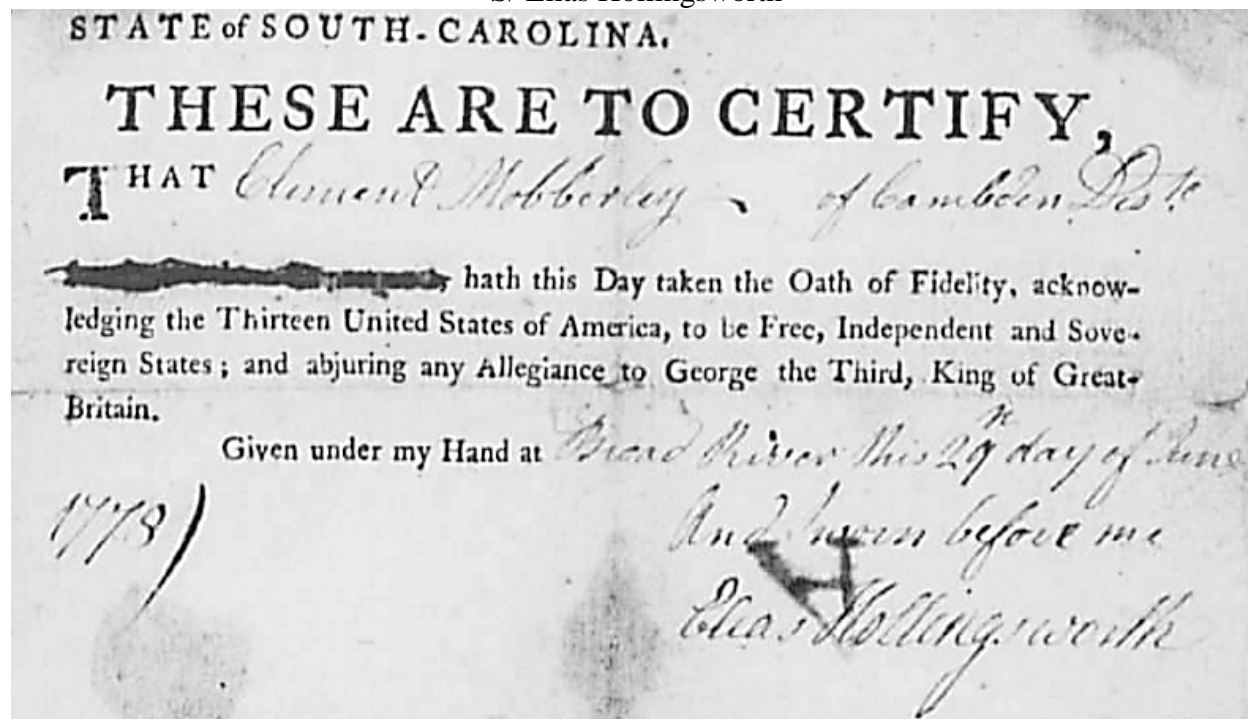 S/ Elias Hollingsworth
STATE of SOUTH-CAROLINA.
THESE ARE TO CERTIFY,
THAT Clement Mobberley of Cambden Distc
hath this Day taken the Oath of Fidelity, acknow-
ledging the Thirteen United States of America, to be Free, Independent and Sove-
reign States; and abjuring any Allegiance to George the Third, King of Great-
Britain.
Given under my Hand at Broad River this 29th day of June
1778) And Sworn before me
Elias Hollingsworth